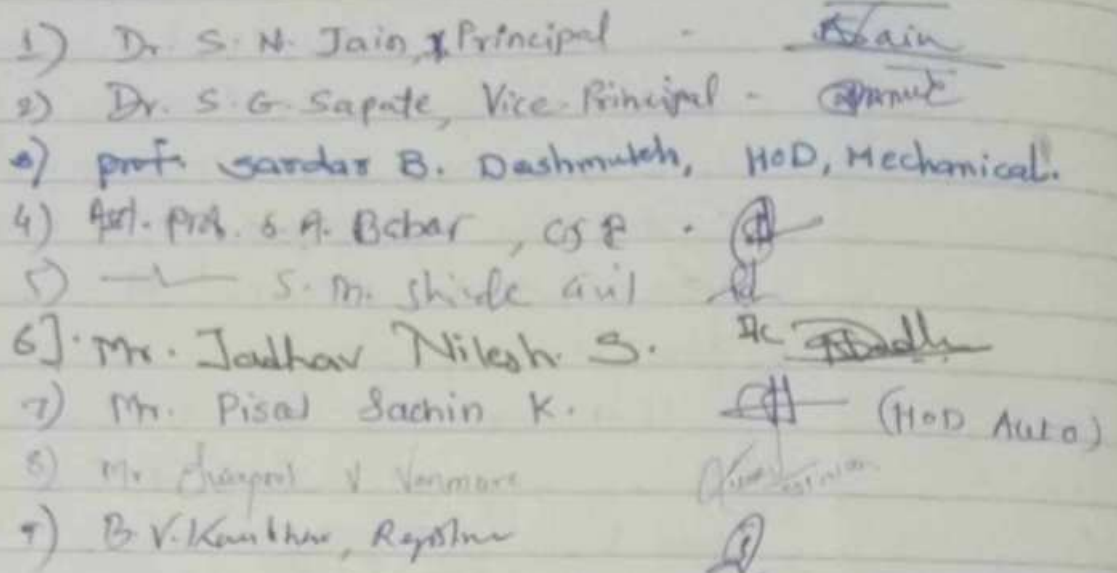 1) Dr. S. N. Jain, Principal - Jain
2) Dr. S. G. Sapate, Vice-Principal -
3) prof. sardar B. Deshmukh, HoD, Mechanical.
4) Asst. Prof. S. A. Babar, CSE -
5) S. M. Shinde Civil
6] Mr. Jadhav Nilesh. S. I/c
7) Mr. Pisal Sachin K. (HoD Auto)
8) Mr. V Vanmore
9) B. V. Registrar